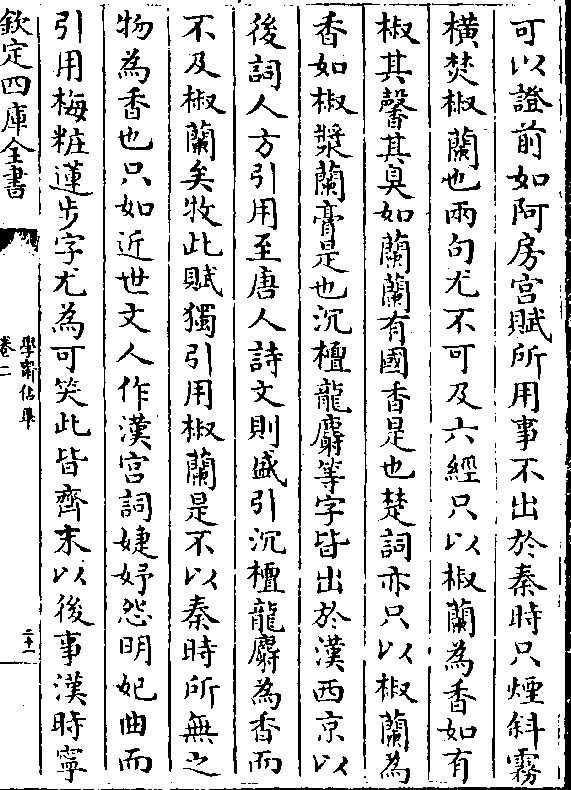 可以證前如阿房宮賦所用事不出於秦時只煙斜霧
橫焚椒蘭也兩句尤不可及六經只以椒蘭為香如有
椒其馨其臭如蘭蘭有國香是也楚詞亦只以椒蘭為
香如椒漿蘭膏是也沉檀龍麝等字皆出於漢西京以
後詞人方引用至唐人詩文則盛引沉檀龍麝為香而
不及椒蘭矣牧此賦獨引用椒蘭是不以秦時所無之
物為香也只如近世文人作漢宮詞婕妤怨明妃曲而
引用梅粧蓮步字尤為可笑此皆齊末以後事漢時寧
欽定四庫全書
學齋佔畢
卷二
二十一